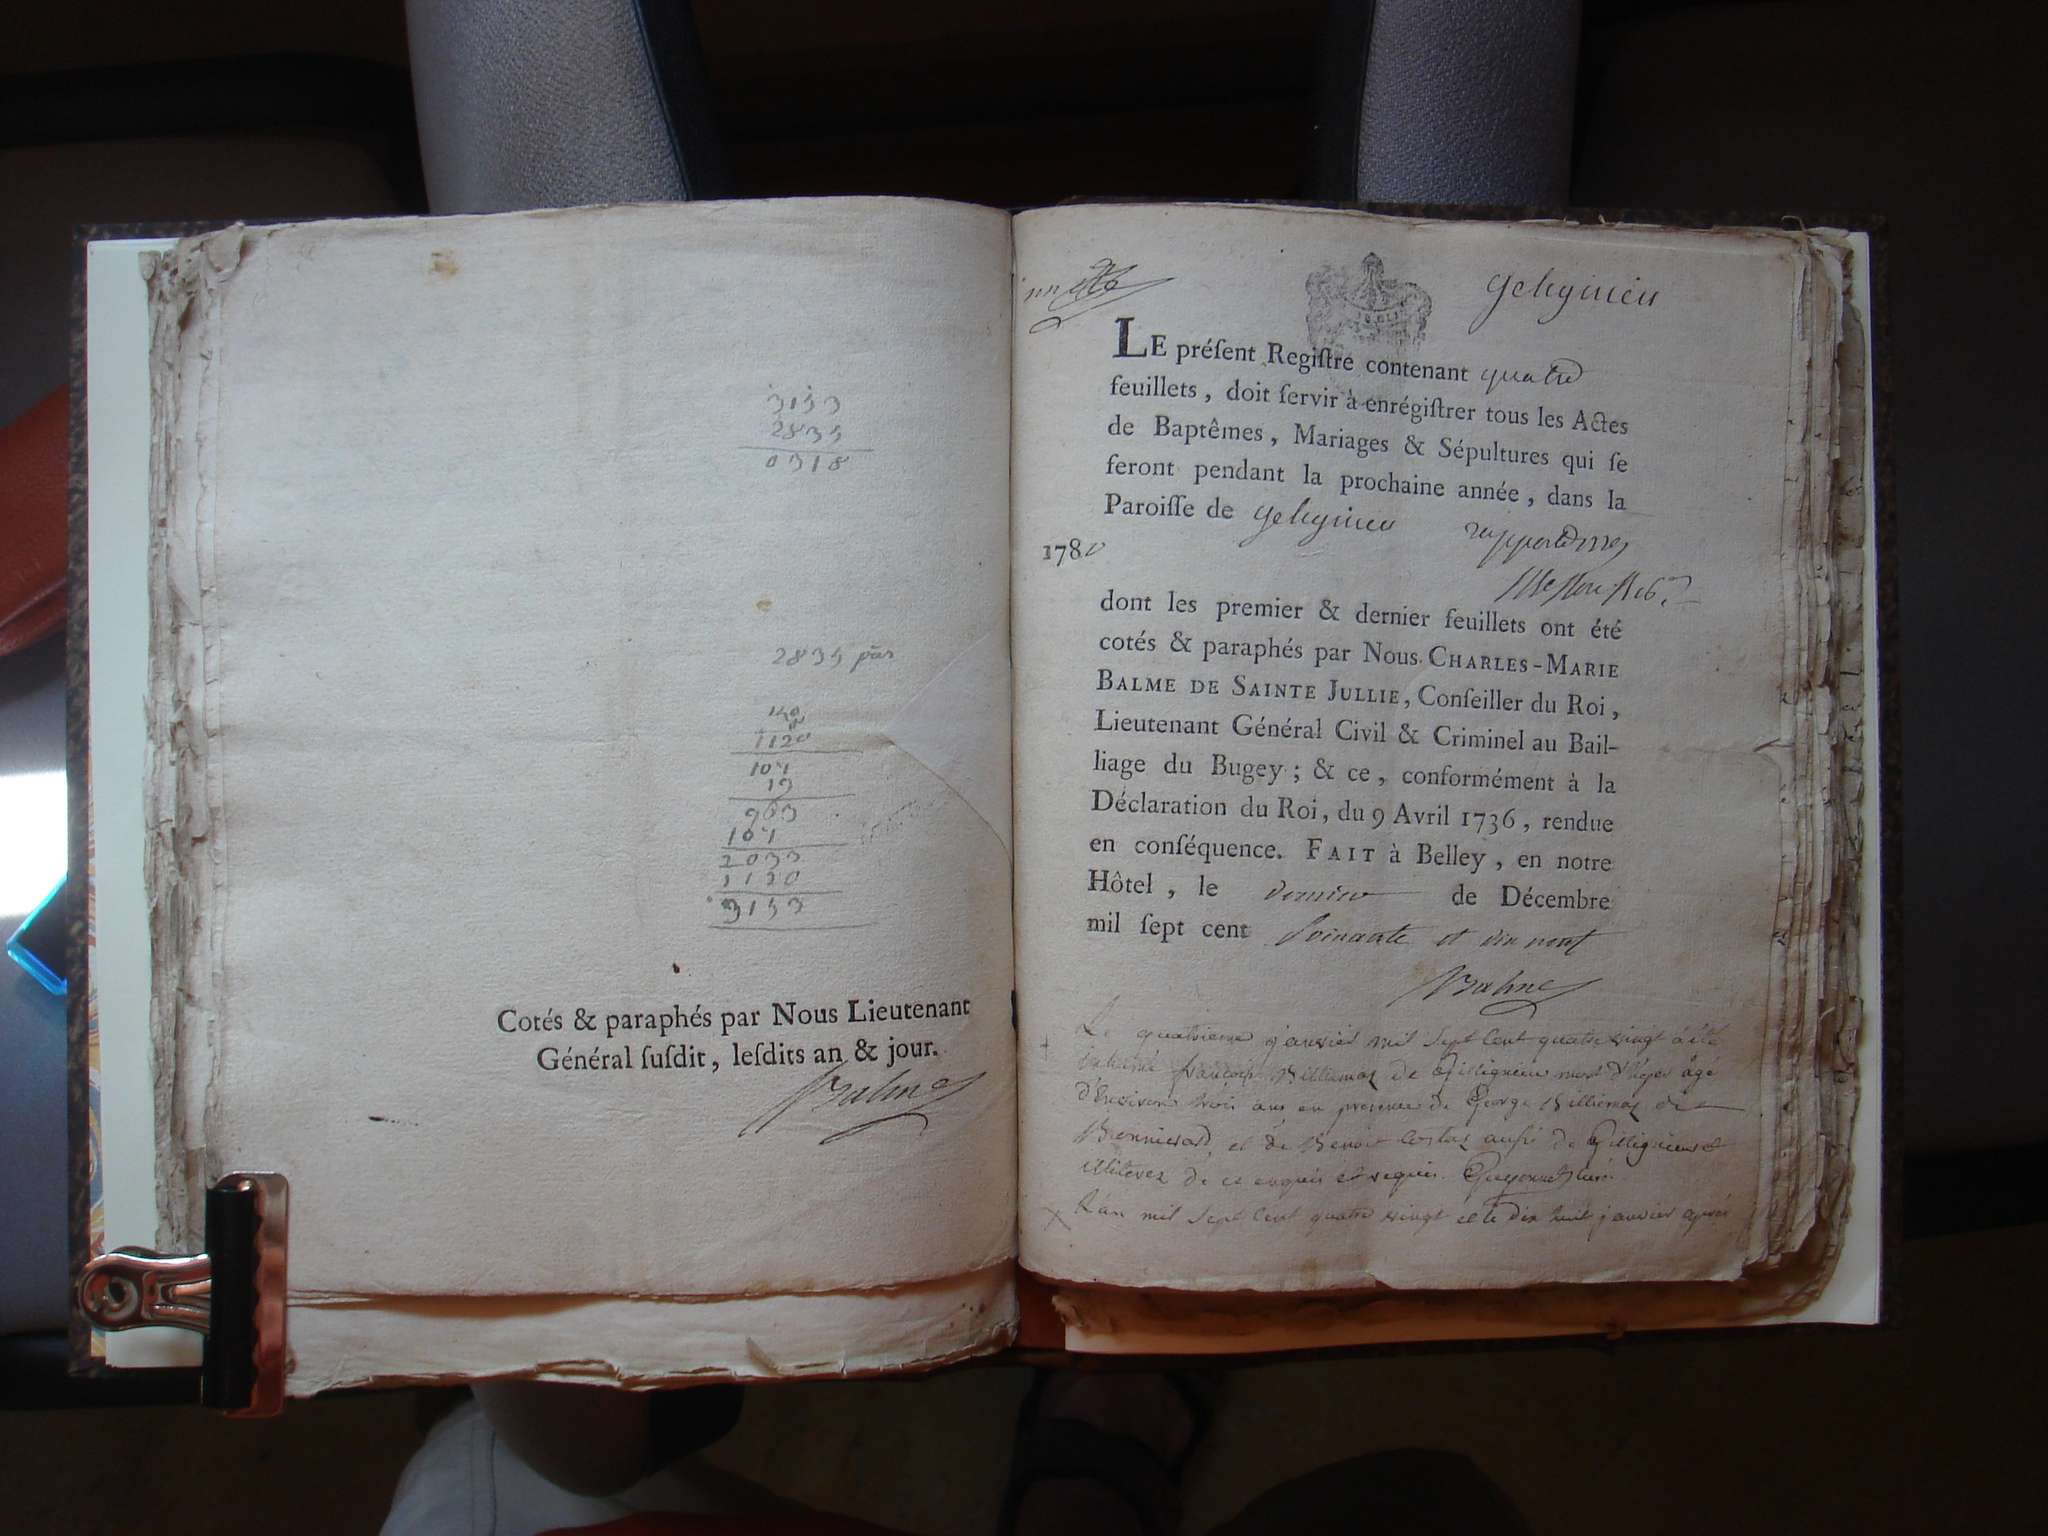 3153
2835
0318
2835 pas
140
1120
107
19
963
107
2033
1120
3153
Cotés & paraphés par Nous Lieutenant
Général ſuſdit, leſdits an & jour.
Balme
gelignieu
LE préſent Regiſtre contenant quatre
feuillets, doit ſervir à enrégiſtrer tous les Actes
de Baptêmes, Mariages & Sépultures qui ſe
feront pendant la prochaine année, dans la
Paroiſſe de gelignieu
1780
dont les premier & dernier feuillets ont été
cotés & paraphés par Nous CHARLES-MARIE
BALME DE SAINTE JULLIE, Conſeiller du Roi,
Lieutenant Général Civil & Criminel au Bail-
liage du Bugey; & ce, conformément à la
Déclaration du Roi, du 9 Avril 1736, rendue
en conſéquence. FAIT à Belley, en notre
Hôtel, le dernier de Décembre
mil ſept cent soixante et dix neuf
Balme
Le quatrieme janvier mil sept cent quatre vingt à été
inhumé Billiemaz de mort d'hyer âgé
d'Environ trois ans en presence de George Billiemaz de
et de Benoit Costaz aussi de
illiterez de ce enquis et requis. Guyonnet curé
L'an mil sept cent quatre vingt et le dix huit janvier après